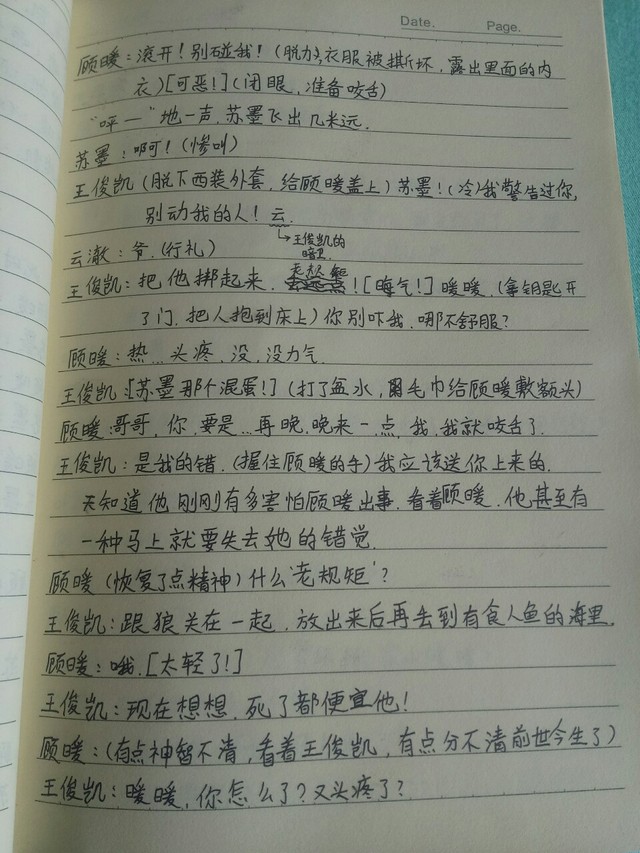 Date.  Page.
顾暖：滚开！别碰我！（脱力，衣服被撕坏，露出里面的内
衣）[可恶！]（闭眼，准备咬舌）
“呯—”地一声，苏墨飞出几米远.
苏墨：啊！（惨叫）
王俊凯（脱下西装外套，给顾暖盖上）苏墨！（冷）我警告过你,
别动我的人！云.
→王俊凯的
暗卫
云澈：爷.（行礼）
王俊凯：把他绑起来.！[晦气！]暖暖.（拿钥匙开
了门，把人抱到床上）你别吓我，哪不舒服？
顾暖：热…头疼，没，没力气.
王俊凯：[苏墨那个混蛋！]（打了盆水，用毛巾给顾暖敷额头）
顾暖：哥哥，你，要是…再晚，晚来一点，我，我就咬舌了.
王俊凯：是我的错.（握住顾暖的手）我应该送你上来的.
天知道他刚刚有多害怕顾暖出事，看着顾暖，他甚至有
一种马上就要失去她的错觉.
顾暖（恢复了点精神）什么‘老规矩’？
王俊凯：跟狼关在一起，放出来后再丢到有食人鱼的海里.
顾暖：哦.[太轻了！]
王俊凯：现在想想，死了都便宜他！
顾暖：（有点神智不清，看着王俊凯，有点分不清前世今生了）
王俊凯：暖暖，你怎么了？又头疼了？